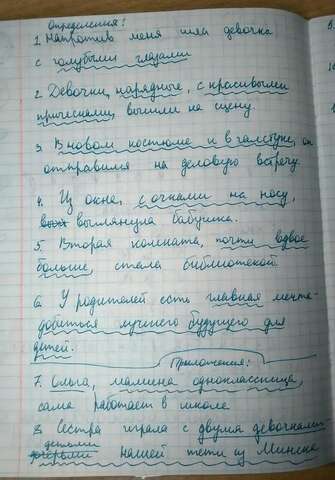 Определения:
1. Напротив меня шла девочка
с голубыми глазами
2. Девочки, нарядные, с красивыми
прическами, вышли на сцену.
3. В новом костюме и в галстуке, он
отправился на деловую встречу.
4. Из окна, с очками на носу,
выглянула бабушка.
5. Вторая комната, почти вдвое
больше, стала библиотекой.
6. У родителей есть главная мечта-
добиться лучшего будущего для
детей.
Приложения:
7. Ольга, мамина одноклассница,
сама работает в школе
8. Сестра играла с двумя девочками
детьми
нашей тети из Минска